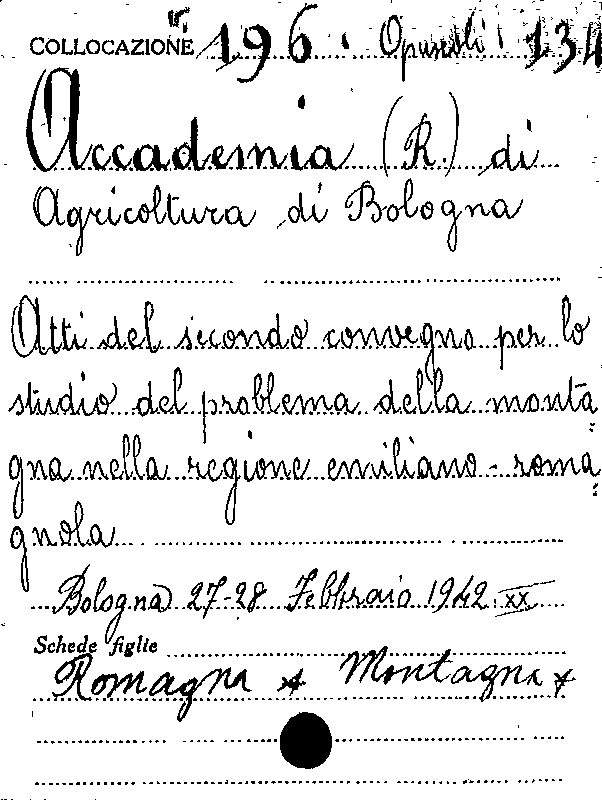 COLLOCAZIONE 196. Opuscoli 134
Accademia (R.) di
Agricoltura di Bologna
Atti del secondo convegno per lo
studio del problema della monta=
gna nella regione emiliano-roma=
gnola
Bologna 27-28 Febbraio 1942 XX
Schede figlie
Romagna x Montagna x